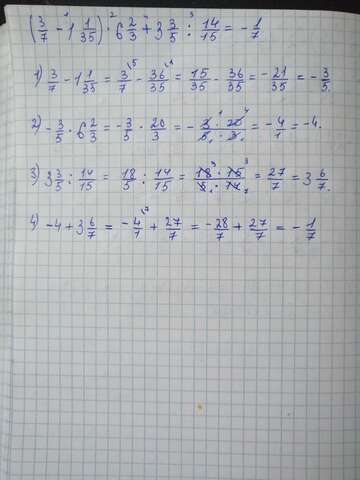 (3/7 - 1 1/35) · 6 2/3 + 3 3/5 : 14/15 = - 1/7
1) 3/7 - 1 1/35 = 3/7 - 36/35 = 15/35 - 36/35 = - 21/35 = - 3/5.
2) - 3/5 · 6 2/3 = - 3/5 · 20/3 = - 3 · 20/5 · 3 = - 4/1 = -4.
3) 3 3/5 : 14/15 = 18/5 : 14/15 = 18 · 15/5 · 14 = 27/7 = 3 6/7.
4) -4 + 3 6/7 = - 4/1 + 27/7 = - 28/7 + 27/7 = - 1/7